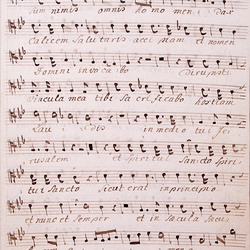 um nimis omnis homo men da-
Calicem Salutaris accipiam et nomen
Domini invocabo Dirupisti
Vincula mea tibi Sacrificabo hostiam
Lau dis in medio tui Je
rusalem et Spiritui Sancto Spiri
tui Sancto Sicut erat in principio
et nunc et Semper et in Sæcula Sæcu